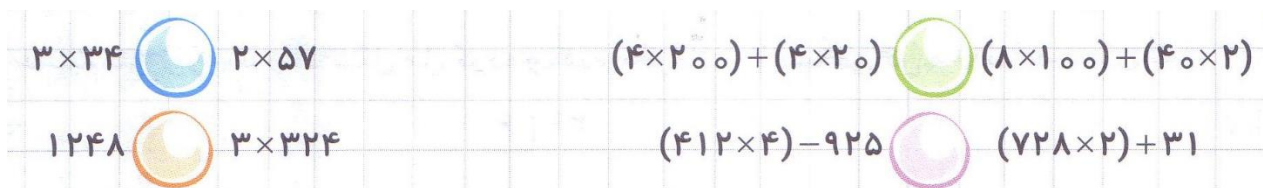 ۳×۳۴ ۲×۵۷ (۴×۲۰۰)+(۴×۲۰) (۸×۱۰۰)+(۴۰×۲)
۱۲۴۸ ۳×۳۲۴ (۴۱۲×۴)−۹۲۵ (۷۲۸×۲)+۳۱